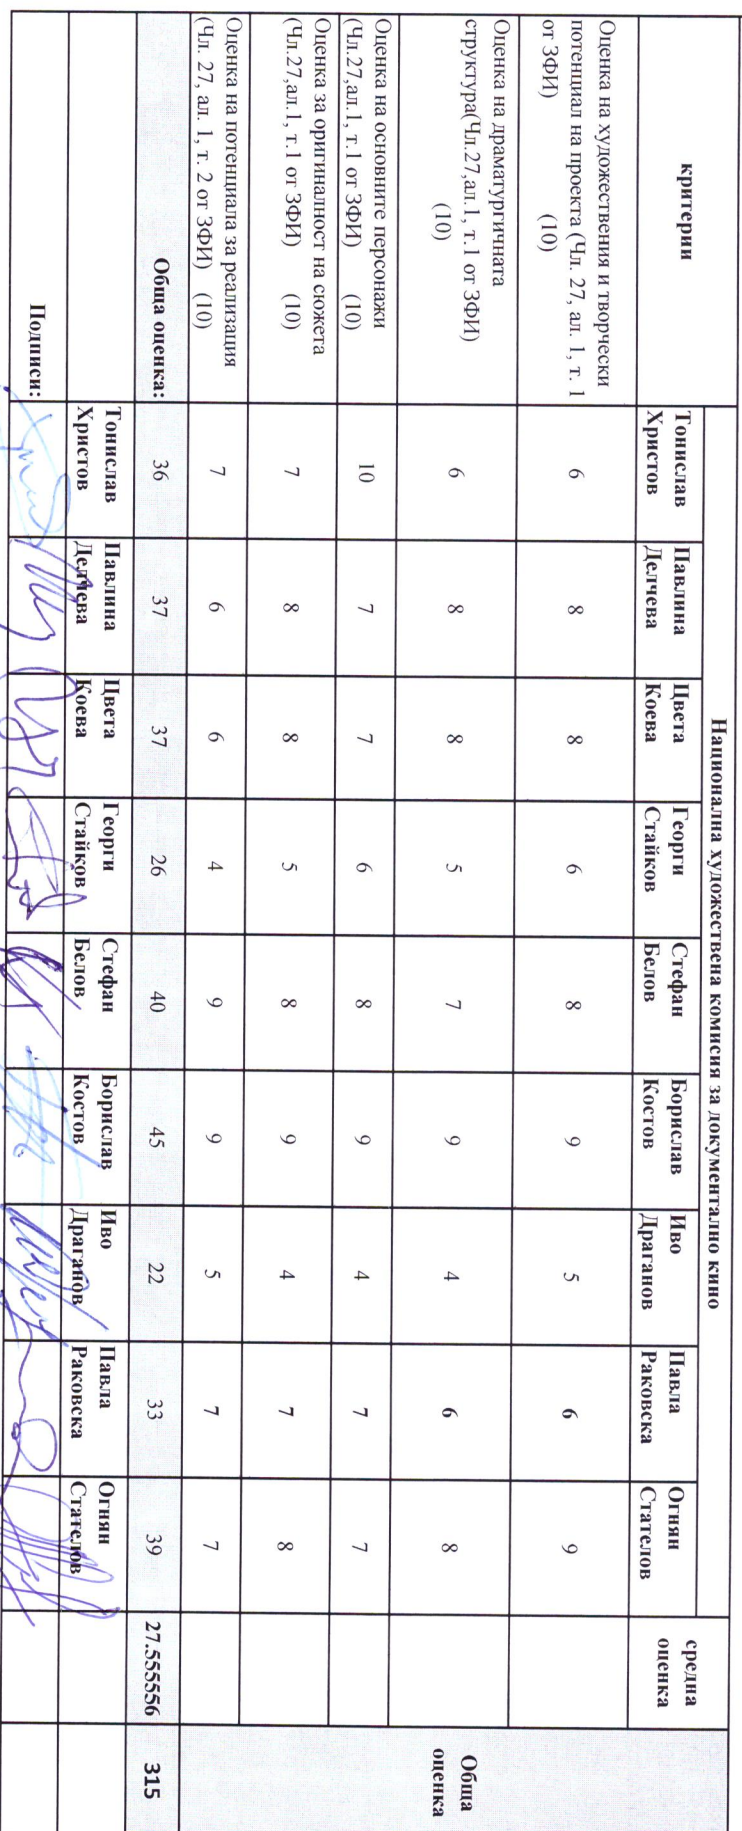 критерии
Национална художествена комисия за документално кино
средна
оценка
Обща
оценка
Тонислав
Христов
Павлина
Делчева
Цвета
Коева
Георги
Стайков
Стефан
Белов
Борислав
Костов
Иво
Драганов
Павла
Раковска
Огнян
Стателов
Оценка на художествения и творчески
потенциал на проекта (Чл. 27, ал. 1, т. 1
от ЗФИ) (10)
6 8 8 6 8 9 5 6 9
Оценка на драматургичната
структура(Чл.27,ал.1, т.1 от ЗФИ)
(10)
6 8 8 5 7 9 4 6 8
Оценка на основните персонажи
(Чл.27,ал.1, т.1 от ЗФИ) (10)
10 7 7 6 8 9 4 7 7
Оценка за оригиналност на сюжета
(Чл.27,ал.1, т.1 от ЗФИ) (10)
7 8 8 5 8 9 4 7 8
Оценка на потенциала за реализация
(Чл. 27, ал. 1, т. 2 от ЗФИ) (10)
7 6 6 4 9 9 5 7 7
Обща оценка: 36 37 37 26 40 45 22 33 39 27.555556 315
Тонислав
Христов
Павлина
Делчева
Цвета
Коева
Георги
Стайков
Стефан
Белов
Борислав
Костов
Иво
Драганов
Павла
Раковска
Огнян
Стателов
Подписи: